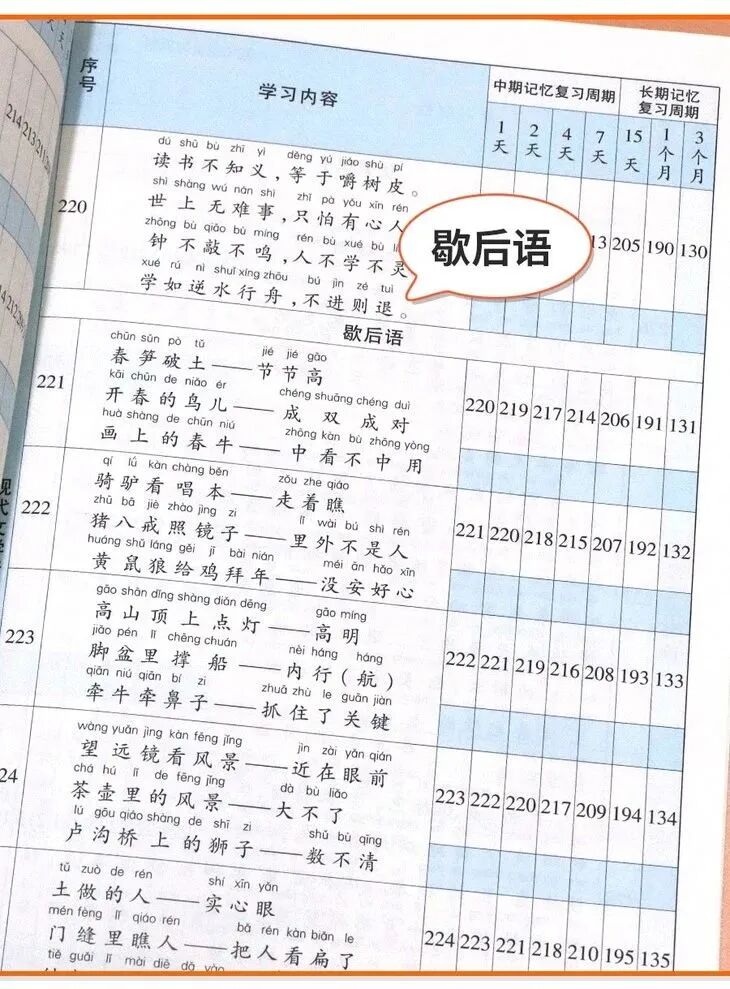 序号
学习内容
中期记忆复习周期
长期记忆复习周期
1天
2天
4天
7天
15天
1个月
3个月
220
dú shū bù zhī yì děng yú jiáo shù pí
读书不知义,等于嚼树皮。
shì shàng wú nán shì zhǐ pà yǒu xīn rén
世上无难事,只怕有心人
zhōng bù qiāo bù míng rén bù xué bù
钟不敲不鸣,人不学不灵
xué rú nì shuǐ xíng zhōu bú jìn zé tuì
学如逆水行舟,不进则退。
13 205 190 130
歇后语
歇后语
221
chūn sǔn pò tǔ jié jié gāo
春笋破土——节节高
kāi chūn de niǎo ér chéng shuāng chéng duì
开春的鸟儿——成双成对
huà shàng de chūn niú zhōng kàn bù zhōng yòng
画上的春牛——中看不中用
220 219 217 214 206 191 131
222
qí lǘ kàn chàng běn zǒu zhe qiáo
骑驴看唱本——走着瞧
zhū bā jiè zhào jìng zi lǐ wài bú shì rén
猪八戒照镜子——里外不是人
huáng shǔ láng gěi jī bài nián méi ān hǎo xīn
黄鼠狼给鸡拜年——没安好心
221 220 218 215 207 192 132
223
gāo shān dǐng shàng diǎn dēng gāo míng
高山顶上点灯——高明
jiǎo pén lǐ chēng chuán nèi háng háng
脚盆里撑船——内行(航)
qiān niú qiān bí zi zhuā zhù le guān jiàn
牵牛牵鼻子——抓住了关键
222 221 219 216 208 193 133
24
wàng yuǎn jìng kàn fēng jǐng jìn zài yǎn qián
望远镜看风景——近在眼前
chá hú lǐ de fēng jǐng dà bù liǎo
茶壶里的风景——大不了
lú gōu qiáo shàng de shī zi shǔ bù qīng
卢沟桥上的狮子——数不清
223 222 220 217 209 194 134
tǔ zuò de rén shí xīn yǎn
土做的人——实心眼
mén fèng lǐ qiáo rén bǎ rén kàn biǎn le
门缝里瞧人——把人看扁了
tiě guǎi lǐ mài diē dǎ yào
224 223 221 218 210 195 135